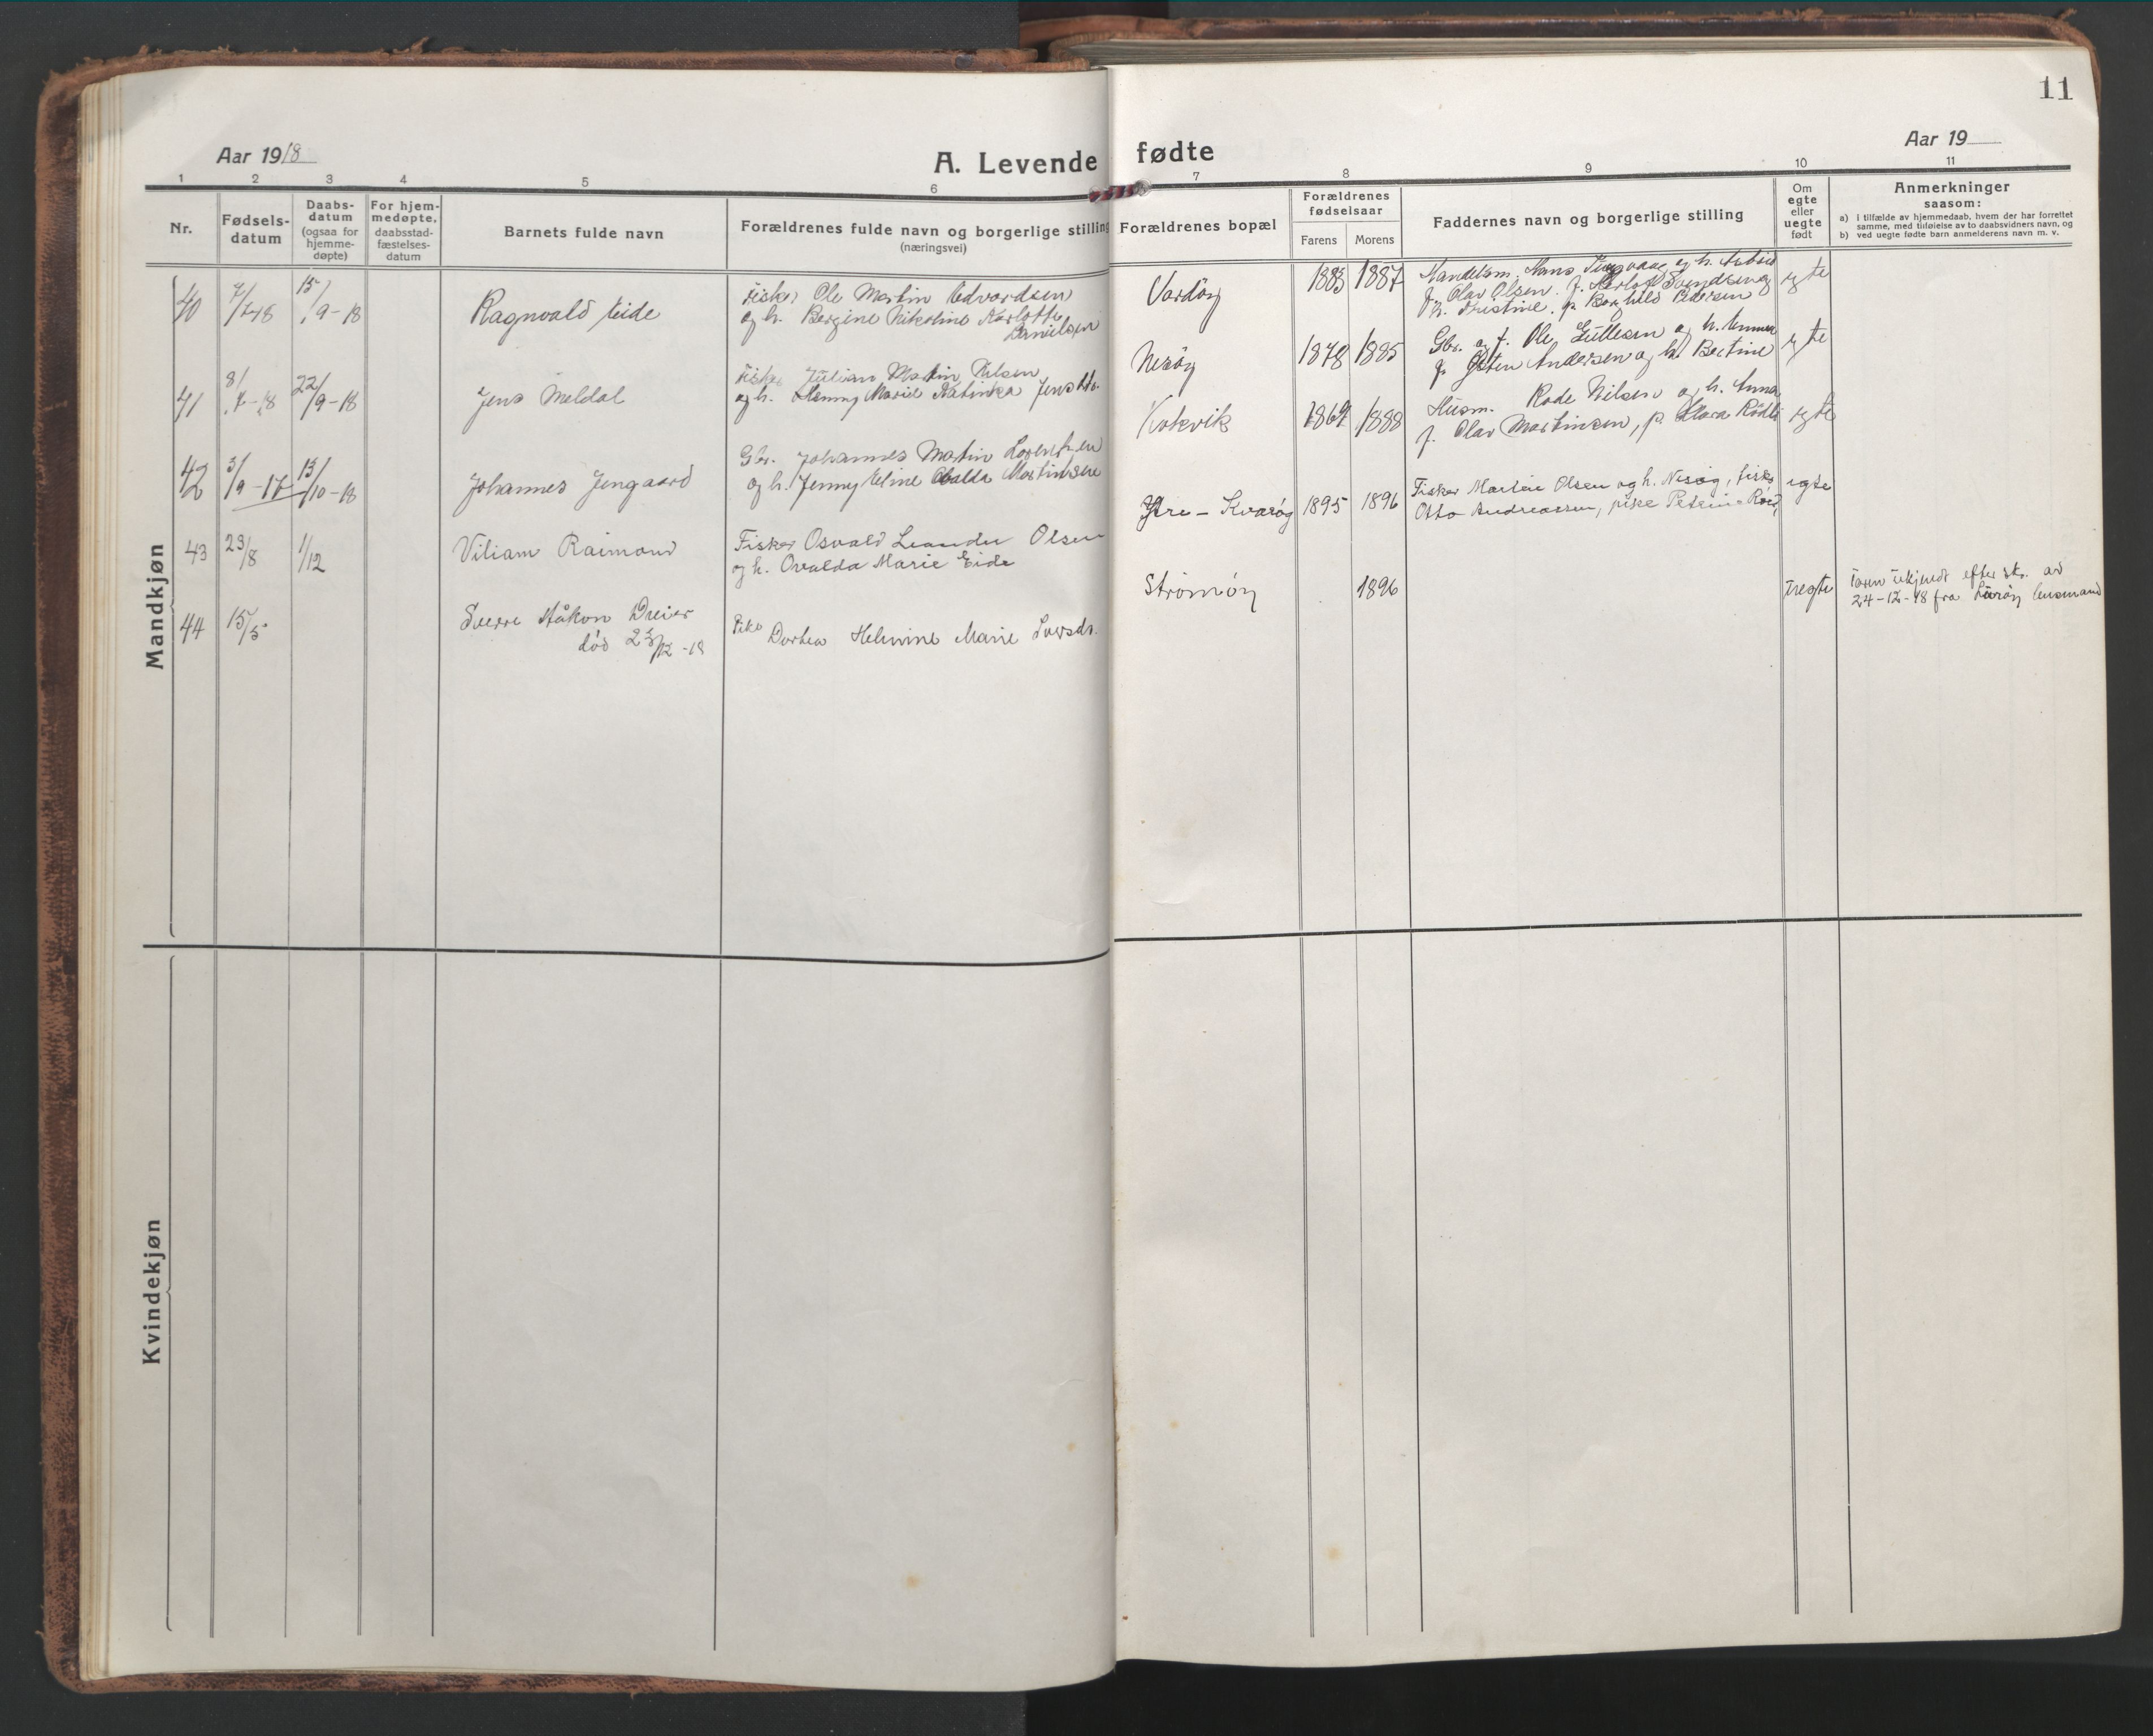 11
Aar 1918
A. Levende fødte
Aar 19
1 2 3 4 5 6 7 8 9 10 11
Nr.
Fødsels-
datum
Daabs-
datum
(ogsaa for
hjemme-
døpte)
For hjem-
medøpte,
daabsstad-
fæstelses-
datum
Barnets fulde navn
Forældrenes fulde navn og borgerlige stilling
(næringsvei)
Forældrenes bopæl
Forældrenes
fødselsaar
Farens Morens
Faddernes navn og borgerlige stilling
Om
egte
eller
uegte
født
Anmerkninger
saasom:
a) i tilfælde av hjemmedaab, hvem der har forrettet
samme, med tilføielse av to daabsvidners navn, og
b) ved uegte fødte barn anmelderens navn m. v.
Mandkjøn
40 15/9-18
Ragnvald Eide
Fisker Ole Martin Edvardsen
og h. Bergine Nikoline Karlotte
Danielsen
Vardöy
1883 1887
Handelsm. Hans og h.
f. Olav Olsen. f. Svendsen og
h. Kristine. p. Borghild Pedersen
egte
41 22/9-18
Jens Meldal
Fisker Julian Martin Nilsen
og h. Henny Marie Katinka Jensdtr.
Nesöy
1878 1885
Gbr. og f. Ole Gullesen og h.
f. Andersen og h. Bertine
egte
42 3/9-17 13/10-18
Johannes Jengaard
Gbr. Johannes Martin Lorentzen
og h. Jenny Eline Martinsen
Kvikvik
1888
Husm. Nilsen og h. Anna
f. Olav Martinsen, p. Klara
egte
43 23/8 1/12
Viliam Raimond
Fisker Osvald Leander Olsen
og h. Ovalda Marie Eide
Ytre-Kvaröy
1895 1896
Fisker Martin Olsen og h. Nesöy, fisker
Otto Andreassen, pike
egte
44 15/5
Sverre Håkon Dreier
död 23/12-18
Pike Dortea Helmine Marie
Strömöy
1896
uegte
Faren ukjendt efter skr. av
24-12-18 fra Luröy lensmand
Kvindekjøn